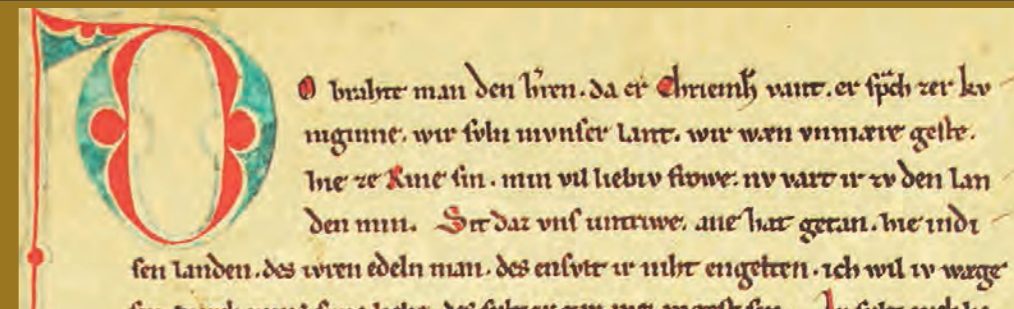 DO brahte man den h'ren. da er Chriemh vant. er sp͛ch zer kv
niginne. wir svln in vnser lant. wir wæn vnmære geste.
hie ze Rine sin. min vil liebiv frowe. nv vart ir zv den lan
den min. Sit daz vns vntriwe. ane hat getan. hie in di
sen landen. des iwren edeln man. des ensvlt ir niht engelten. ich wil iv wæge